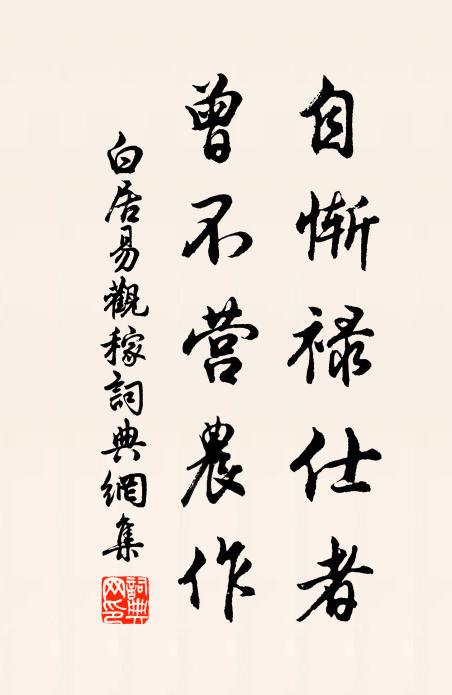 自惭禄仕者
曾不营農作
白居易觀稼詞典網集
詞典网印